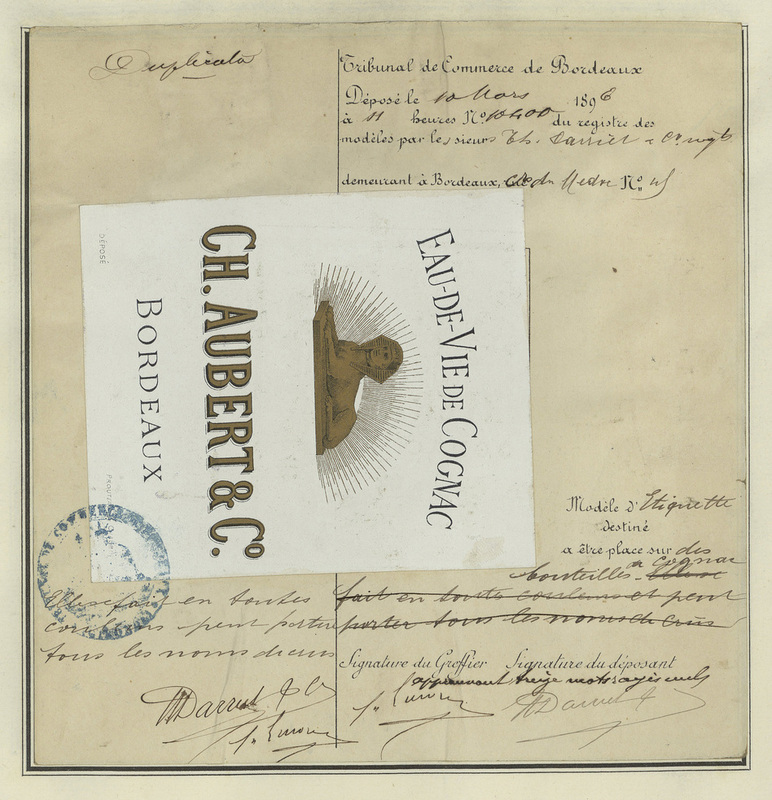 Duplicata
Tribunal de Commerce de Bordeaux
Déposé le 10 Mars 1896
à 11 heures No. 10400 du registre des
modèles par les sieurs Th. & Co
demeurant à Bordeaux, No. 
EAU-DE-VIE DE COGNAC
CH. AUBERT & Co.
BORDEAUX
DÉPOSÉ
Modèle d'Etiquette
destiné
a être place sur des
bouteilles de Cognac
fait en toutes couleurs et peut
porter tous les noms de crus
en toutes
couleurs peut porter
tous les noms de crus
Signature du Greffier Signature du déposant
approuvant treize mots rayés nuls